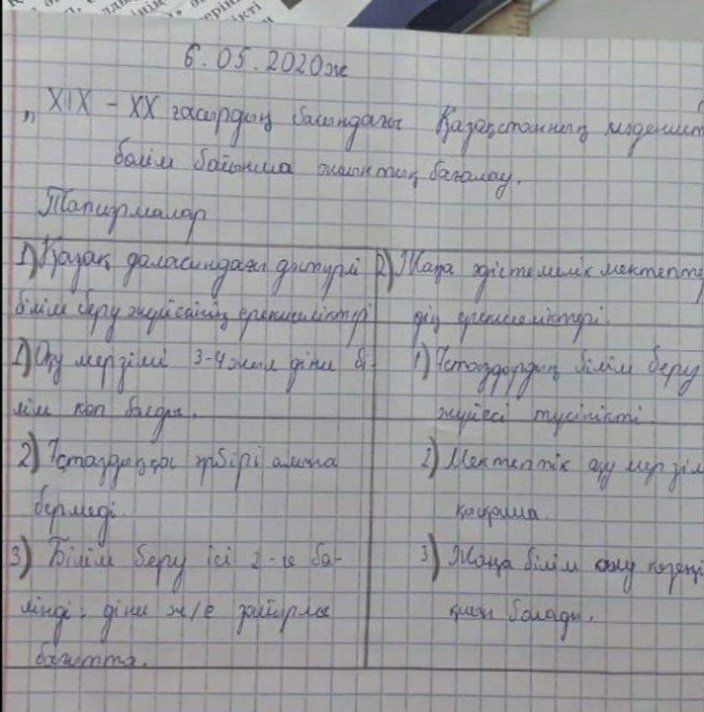 6.05.2020ж
„XIX - XX ғасырдың басындағы Қазақстанның мәдениет
бөлім бойынша жиынтық бағалау.
Тапсырмалар
1) Қазақ даласындағы дәстүрлі
білім беру жүйесінің ерекшеліктері
1) Оқу мерзімі 3-4 жыл діни бі-
лім көп болды.
2) Ұстаздыққа
бермеді.
3) Білім беру ісі 2-ге бө-
лінді: діни ж/е зайырлы
бағытта.
2) Жаңа әдістемелік мектепте
дің ерекшеліктері.
1) Ұстаздардың білім беру
жүйесі түсінікті.
2) Мектептік оқу мерзім
қысқаша
3) Жаңа білім алу кезеңі
қиын болады.